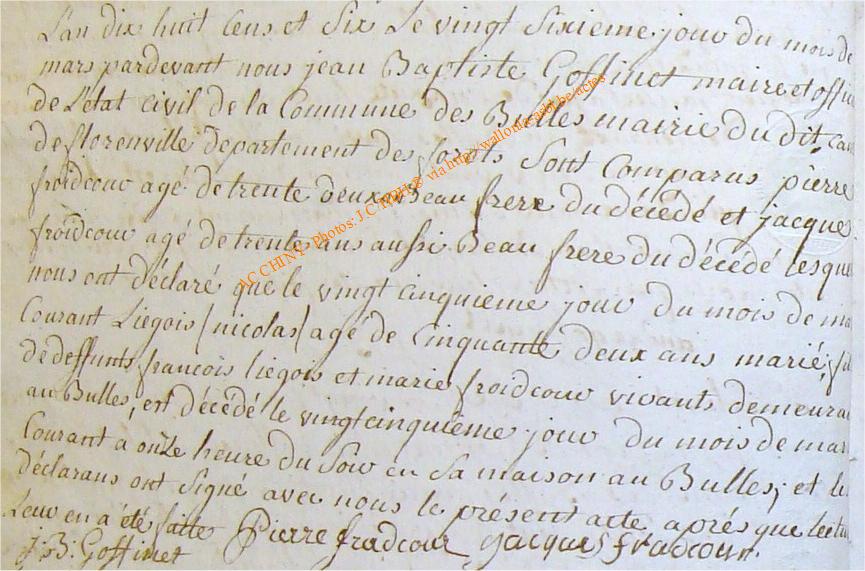 L'an dix huit Cens et Six Le vingt Sixieme jour du mois de
mars pardevant nous jean Baptiste Goffinet maire et offi
de L'état Civil de la Commune des Bulles mairie du dit. can
de florenville departement des forets Sont Comparus pierre
froidcour agé de trente deux Beau frere du décédé et jacque
froidcour agé de trente ans aussi Beau frere du décédé Lesque
nous ont déclaré que le vingt cinquieme jour du mois de ma
Courant Liégois (nicolas) agé de Cinquante deux ans marié, fil
de deffunts francois liegois et marie froidcour vivants demeura
au Bulles, est décédé le vingtcinquième jour du mois de mar
Courant a onze heure du Soir en Sa maison au Bulles; et le
déclarans ont Signé avec nous le présent acte aprés que lectu
Leur en a été faitte
J:B: Goffinet Pierre fradcour jacques fradcour.
AC CHINY - Photos: J.C. via http://wallonie.arbt.be/actes